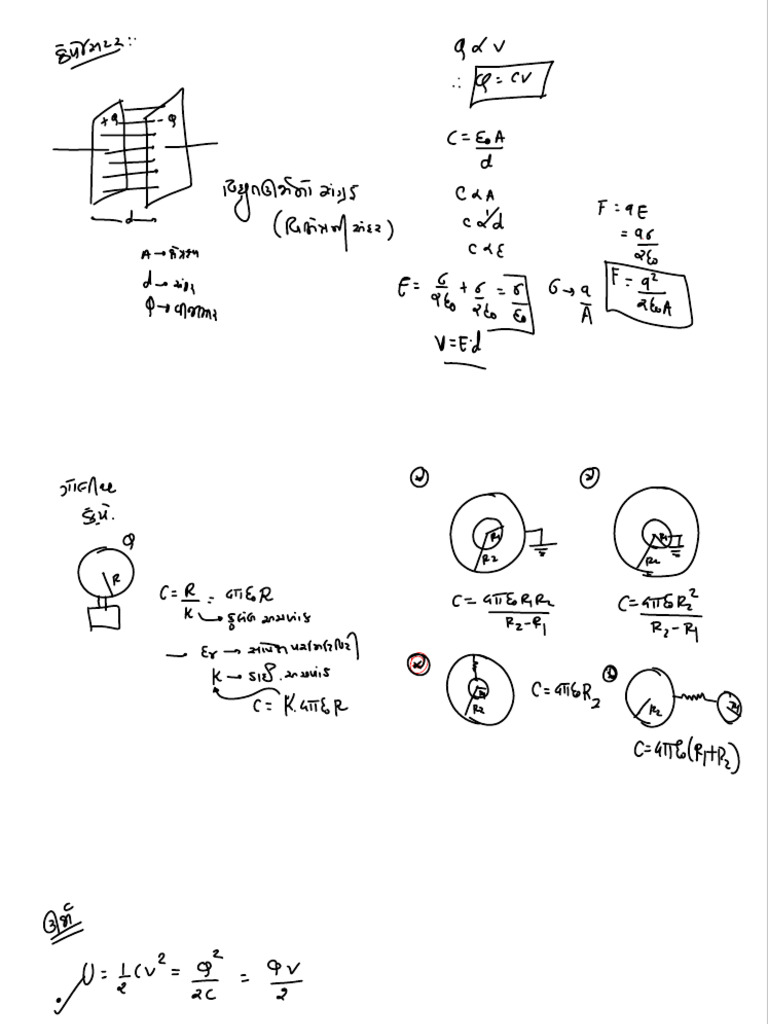 કેપેસિટર :-
+Q
-Q
d
A → ક્ષેત્રફળ
d → અંતર
Q → વીજભાર
(વિદ્યુતઊર્જાનો સંગ્રહ
Q ∝ V
∴ Q = CV
C = ε₀A/d
C ∝ A
C ∝ 1/d
C ∝ ε
E = σ/2ε₀ + σ/2ε₀ = σ/ε₀
σ → q/A
V = E·d
F = qE
= qσ/2ε₀
F = q²/2ε₀A
ગોલીય
કેપે.
Q
R
C = R/K = 4πε₀R
K
→ εr →
K → ડાઈ. અચળાંક
C = K·4πε₀R
R₁
R₂
C = 4πε₀R₁R₂/R₂-R₁
R₁
R₂
C = 4πε₀R₂²/R₂-R₁
R₁
R₂
C = 4πε₀R₂
R₂
R₁
C = 4πε₀(R₁+R₂)
U = 1/2 CV² = Q²/2C = QV/2